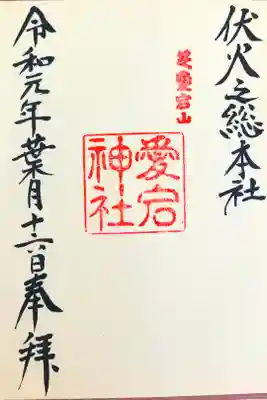 伏火之総本社
芝愛宕山
愛宕
神社
令和元年葉月十六日奉拝